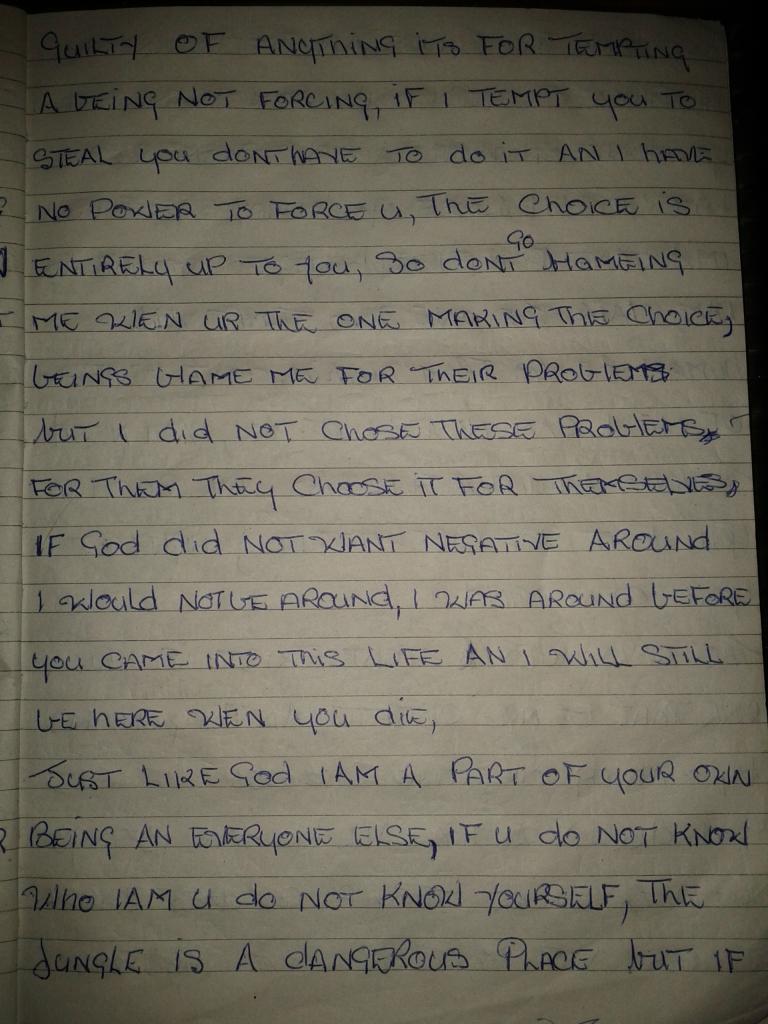 GUILTY OF ANYTHING ITS FOR TEMPTING
A BEING NOT FORCING, IF I TEMPT YOU TO
STEAL YOU DONT HAVE TO do iT AN I HAVE
NO POWER TO FORCE U, THE CHOICE is
ENTIRELY UP TO YOU, SO dONT GO BLAMEING
ME WEN UR THE ONE MAKING THE CHOICE,
BEINGS BLAME ME FOR THEIR PROBLEMS
bUT I did NOT CHOSE THESE PROBLEMS,
FOR THEM THEY CHOOSE IT FOR THEMSELVES,
IF God did NOT WANT NEGATIVE AROUND
I WOUld NOT BE AROUND, I WAS AROUND BEFORE
YOU CAME INTO THIS LIFE AN I WILL STILL
BE HERE WEN YOU diE,
JUST LIKE God I AM A PART OF YOUR OWN
BEING AN EVERYONE ELSE, IF U do NOT KNOW
WHO I AM U do NOT KNOW YOURSELF, THE
JUNGLE IS A dANGEROUS PLACE bUT IF